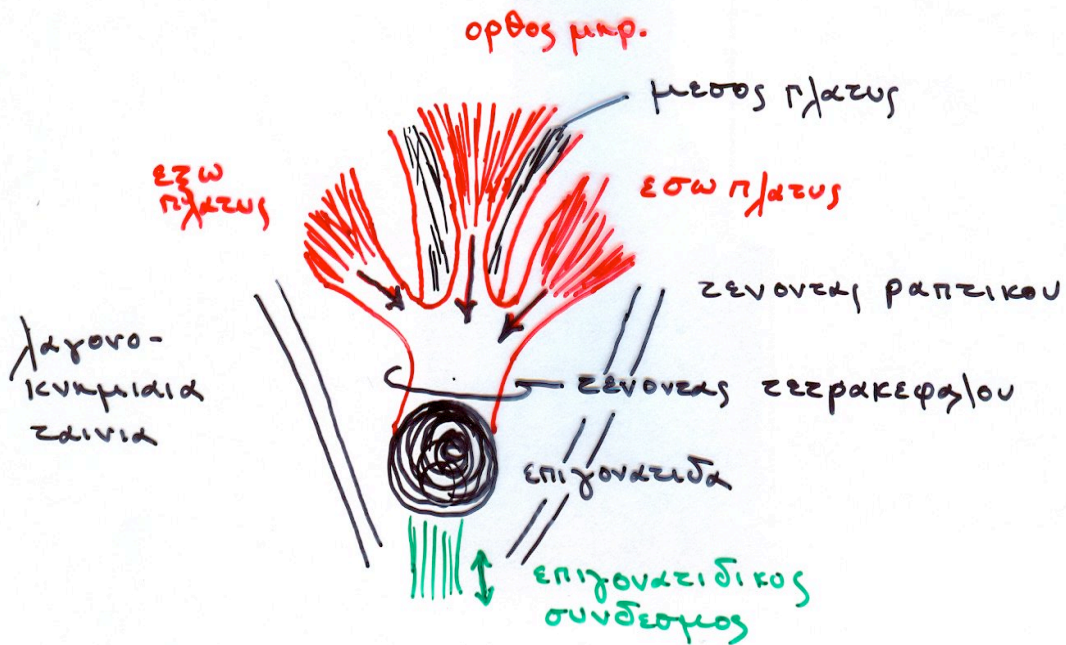 ορθος μηρ.
μεσος πλατυς
εξω
πλατυς
εσω πλατυς
τενοντας ραπτικου
λαγονο-
κνημιαια
ταινια
τενοντας τετρακεφαλου
επιγονατιδα
επιγονατιδικος
συνδεσμος